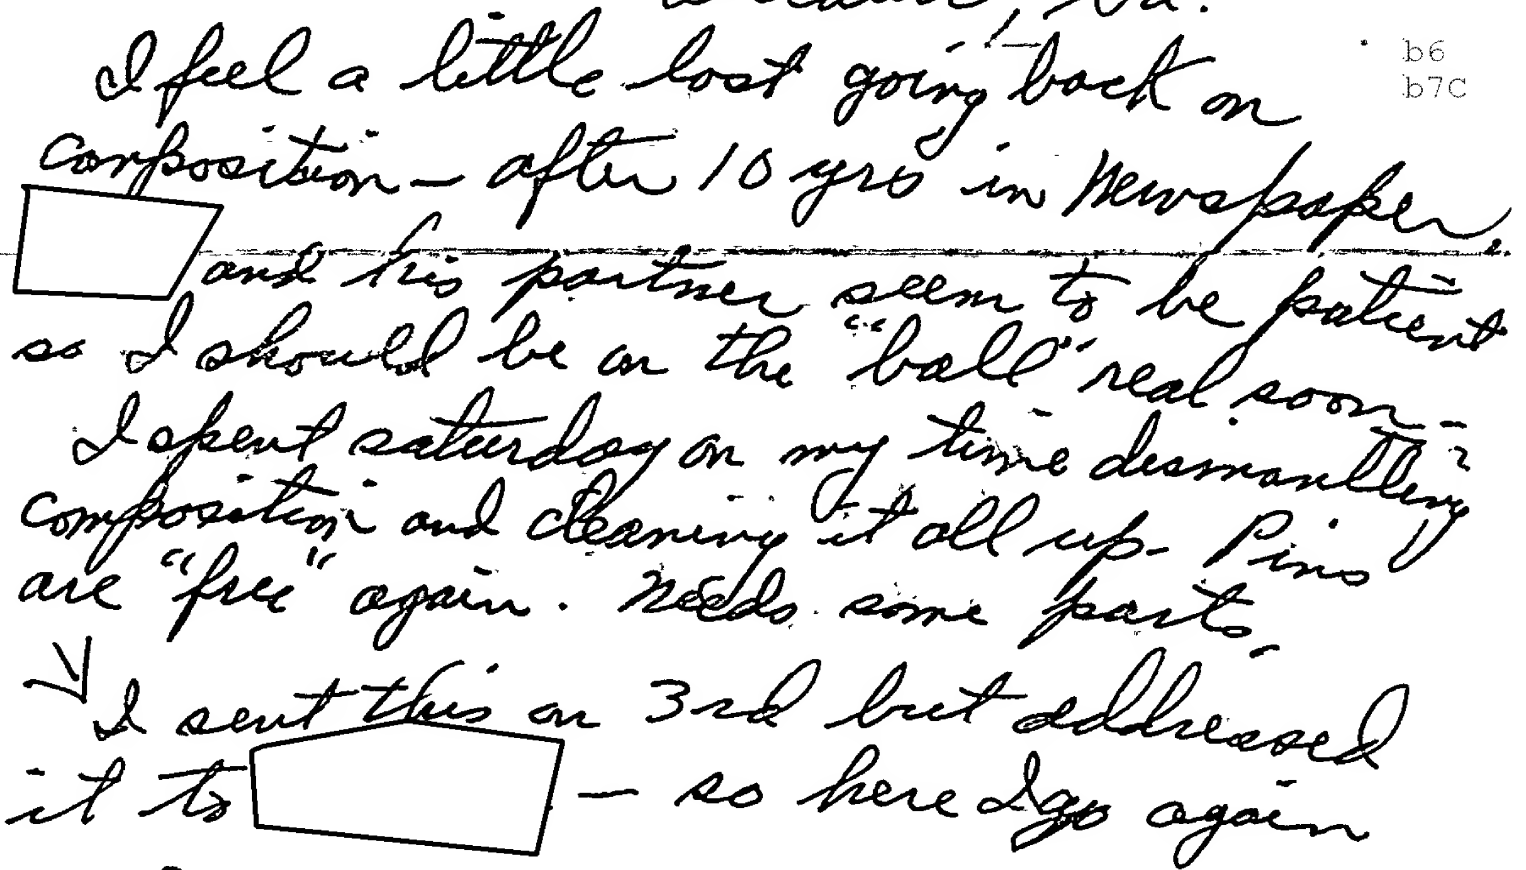 Va.
b6
b7C
I feel a little lost going back on
composition - after 10 yrs in Newspaper.
and his partner seem to be patient
so I should be on the "ball" real soon -
I spent saturday on my time dismantling
composition and cleaning it all up - Pins
are "free" again. Needs some parts.
I sent this on 3rd but addressed
it to — so here I go again